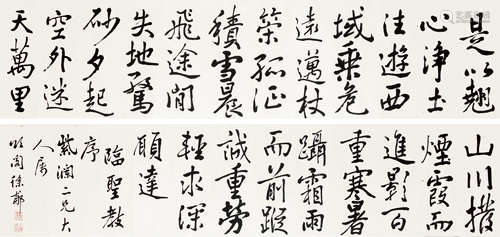 是以翹
心淨土
往遊西
域乘危
遠邁杖
策孤征
積雪晨
飛途間
失地驚
砂夕起
空外迷
天萬里
山川撥
煙霞而
進影百
重寒暑
躡霜雨
而前蹤
誠重勞
輕求深
願達
臨聖教
序
二兄大
人屬
頌閣徐郙